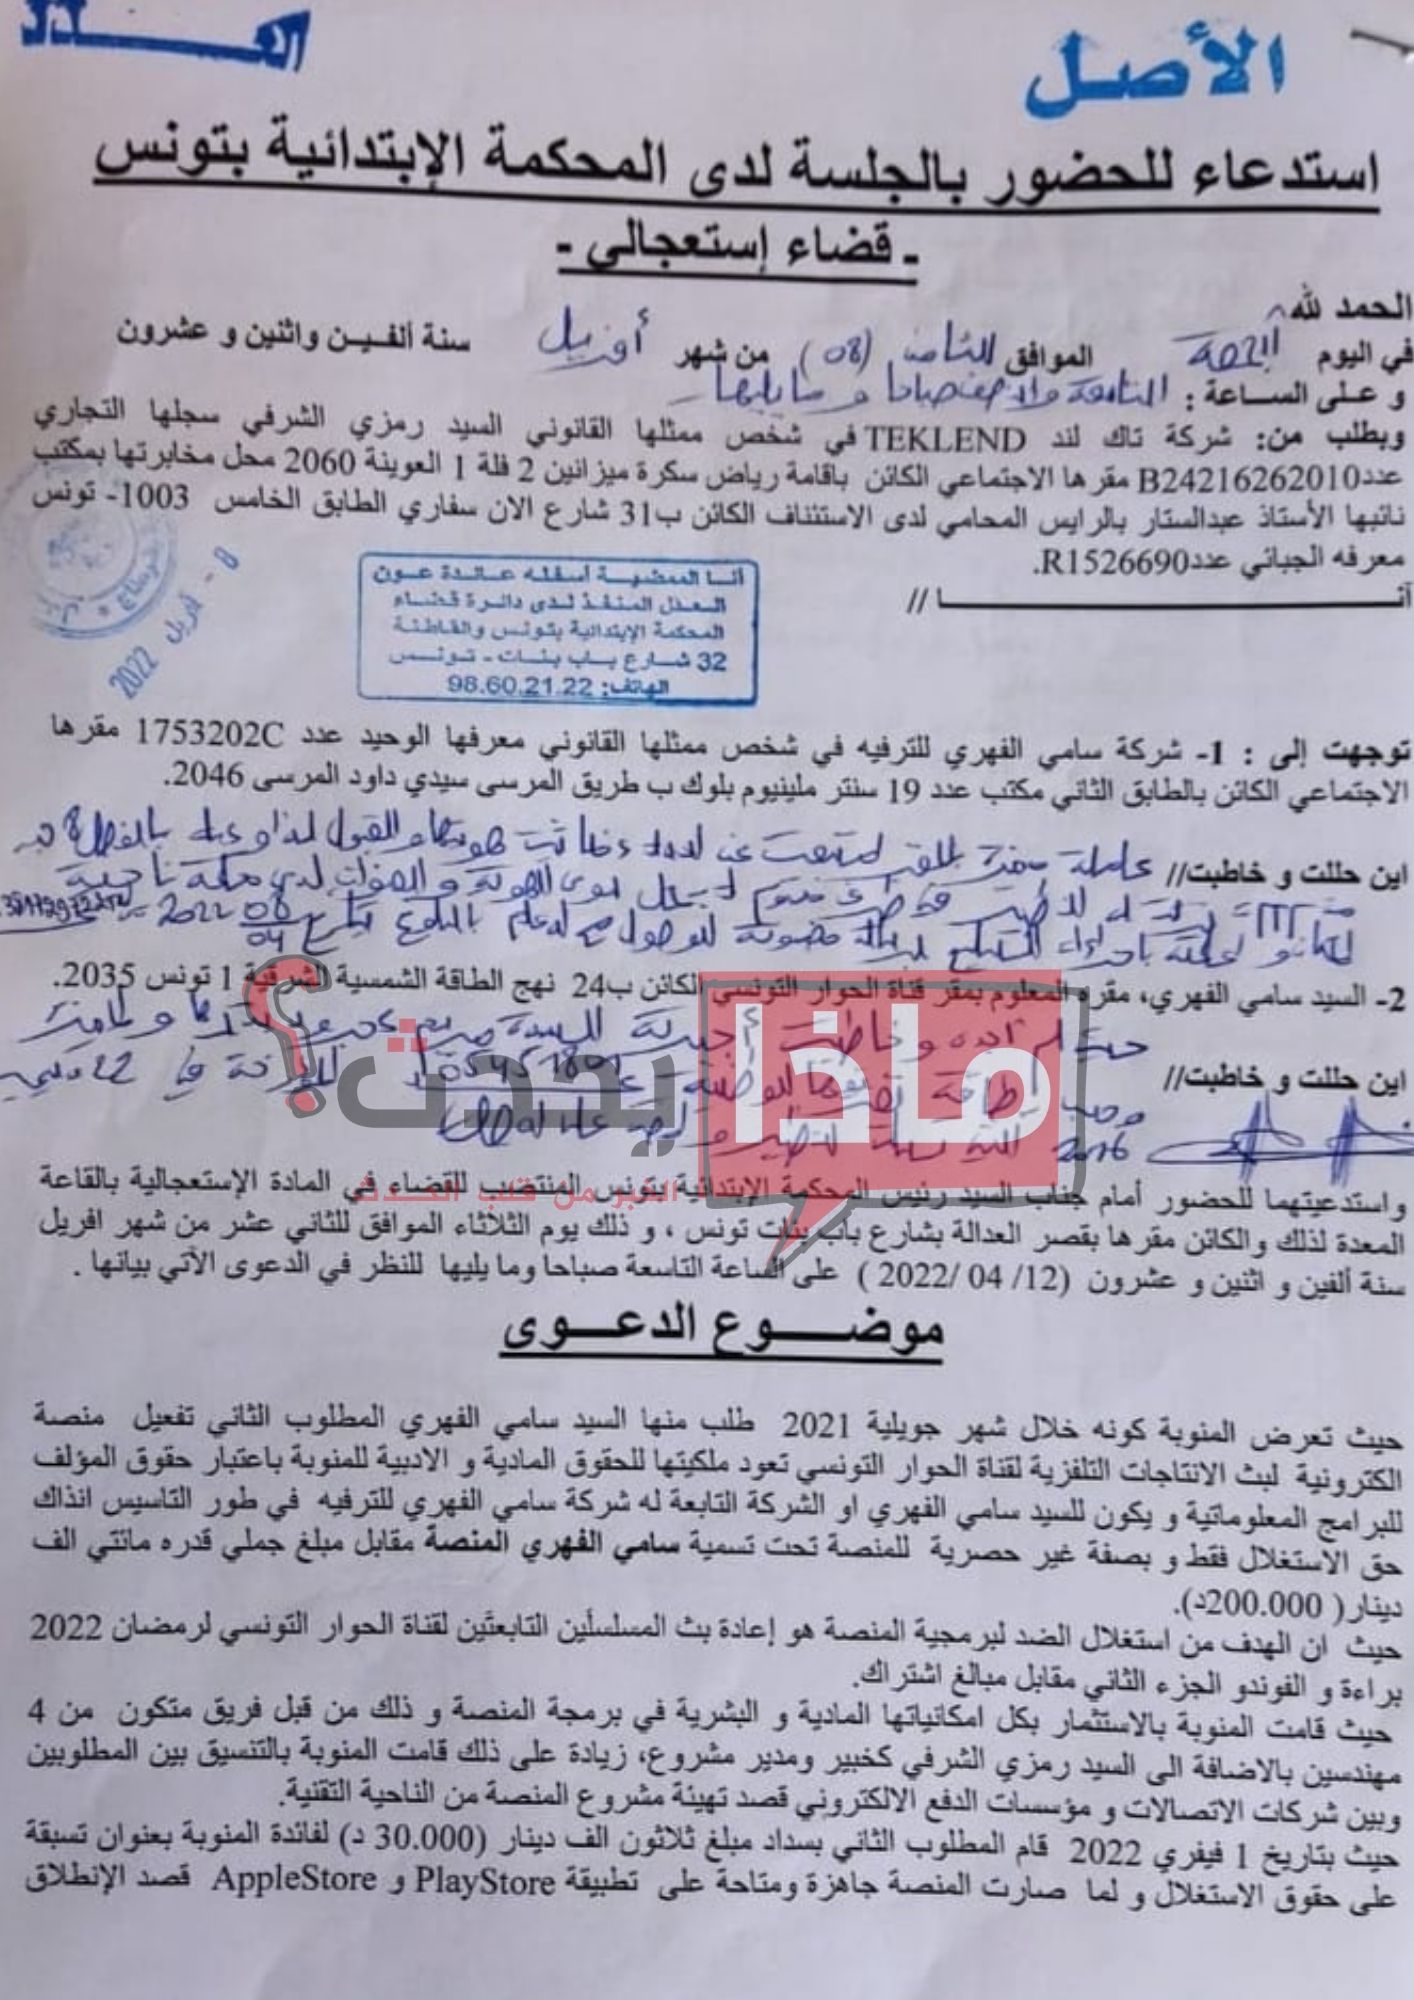 العدد
الأصل
استدعاء للحضور بالجلسة لدى المحكمة الإبتدائية بتونس
- قضاء إستعجالي -
الحمد لله
في اليوم الجمعة الموافق الثامن (08) من شهر أفريل سنة ألفين واثنين و عشرون
و على الساعة : التاسعة والنصف صباحا وما يليها
وبطلب من: شركة تاك لند TEKLEND في شخص ممثلها القانوني السيد رمزي الشرفي سجلها التجاري
عدد B24216262010 مقرها الاجتماعي الكائن باقامة رياض سكرة ميزانين 2 فلة 1 العوينة 2060 محل مخابرتها بمكتب
نائبها الأستاذ عبدالستار بالرايس المحامي لدى الاستئناف الكائن ب31 شارع الان سفاري الطابق الخامس 1003- تونس
معرفه الجبائي عدد R1526690.
أنـــا //
8 - أفريل 2022
أنا الممضية أسفله عائدة عون
العدل المنفذ لدى دائرة قضاء
المحكمة الإبتدائية بتونس والقاطنة
32 شارع باب بنات - تونس
الهاتف: 98.60.21.22
توجهت إلى : 1- شركة سامي الفهري للترفيه في شخص ممثلها القانوني معرفها الوحيد عدد 1753202C مقرها
الاجتماعي الكائن بالطابق الثاني مكتب عدد 19 سنتر ملينيوم بلوك ب طريق المرسى سيدي داود المرسى 2046.
اين حللت و خاطبت//
2- السيد سامي الفهري، مقره المعلوم بمقر قناة الحوار التونسي الكائن ب24 نهج الطاقة الشمسية الشرقية 1 تونس 2035.
اين حللت و خاطبت//
ماذا يحدث؟
الخبر من قلب الحدث
واستدعيتهما للحضور أمام جناب السيد رئيس المحكمة الإبتدائية بتونس المنتصب للقضاء في المادة الإستعجالية بالقاعة
المعدة لذلك والكائن مقرها بقصر العدالة بشارع باب بنات تونس ، و ذلك يوم الثلاثاء الموافق للثاني عشر من شهر افريل
سنة ألفين و اثنين و عشرون (12/ 04 /2022 ) على الساعة التاسعة صباحا وما يليها للنظر في الدعوى الآتي بيانها .
موضـــوع الدعـــوى
حيث تعرض المنوبة كونه خلال شهر جويلية 2021 طلب منها السيد سامي الفهري المطلوب الثاني تفعيل منصة
الكترونية لبث الانتاجات التلفزية لقناة الحوار التونسي تعود ملكيتها للحقوق المادية و الادبية للمنوبة باعتبار حقوق المؤلف
للبرامج المعلوماتية و يكون للسيد سامي الفهري او الشركة التابعة له شركة سامي الفهري للترفيه في طور التاسيس انذاك
حق الاستغلال فقط و بصفة غير حصرية للمنصة تحت تسمية سامي الفهري المنصة مقابل مبلغ جملي قدره مائتي الف
دينار( 200.000د).
حيث ان الهدف من استغلال الضد لبرمجية المنصة هو إعادة بث المسلسلين التابعتين لقناة الحوار التونسي لرمضان 2022
براءة و الفوندو الجزء الثاني مقابل مبالغ اشتراك.
حيث قامت المنوبة بالاستثمار بكل امكانياتها المادية و البشرية في برمجة المنصة و ذلك من قبل فريق متكون من 4
مهندسين بالاضافة الى السيد رمزي الشرفي كخبير ومدير مشروع، زيادة على ذلك قامت المنوبة بالتنسيق بين المطلوبين
وبين شركات الاتصالات و مؤسسات الدفع الالكتروني قصد تهيئة مشروع المنصة من الناحية التقنية.
حيث بتاريخ 1 فيفري 2022 قام المطلوب الثاني بسداد مبلغ ثلاثون الف دينار (30.000 د) لفائدة المنوبة بعنوان تسبقة
على حقوق الاستغلال و لما صارت المنصة جاهزة ومتاحة على تطبيقة PlayStore و AppleStore قصد الإنطلاق